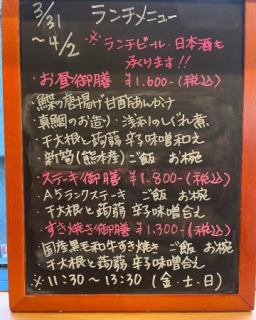 3/31
～4/2
ランチメニュー
※ランチビール・日本酒も
承ります!!
・お昼御膳 ¥1.600-(税込)
鰈の唐揚げ甘酢あんかけ
真鯛のお造り・浅利のしぐれ煮
干大根と蒟蒻 辛子味噌和え
・新筍(熊本産)ご飯 お椀
・ステーキ御膳 ¥1.800-(税込)
・A5ランクステーキ ご飯 お椀
・干大根と蒟蒻 辛子味噌合え
すき焼き御膳 ¥1.300-(税込)
国産黒毛和牛すき焼き ご飯 お椀
干大根と蒟蒻 辛子味噌合え
※11:30～13:30(金・土・日)